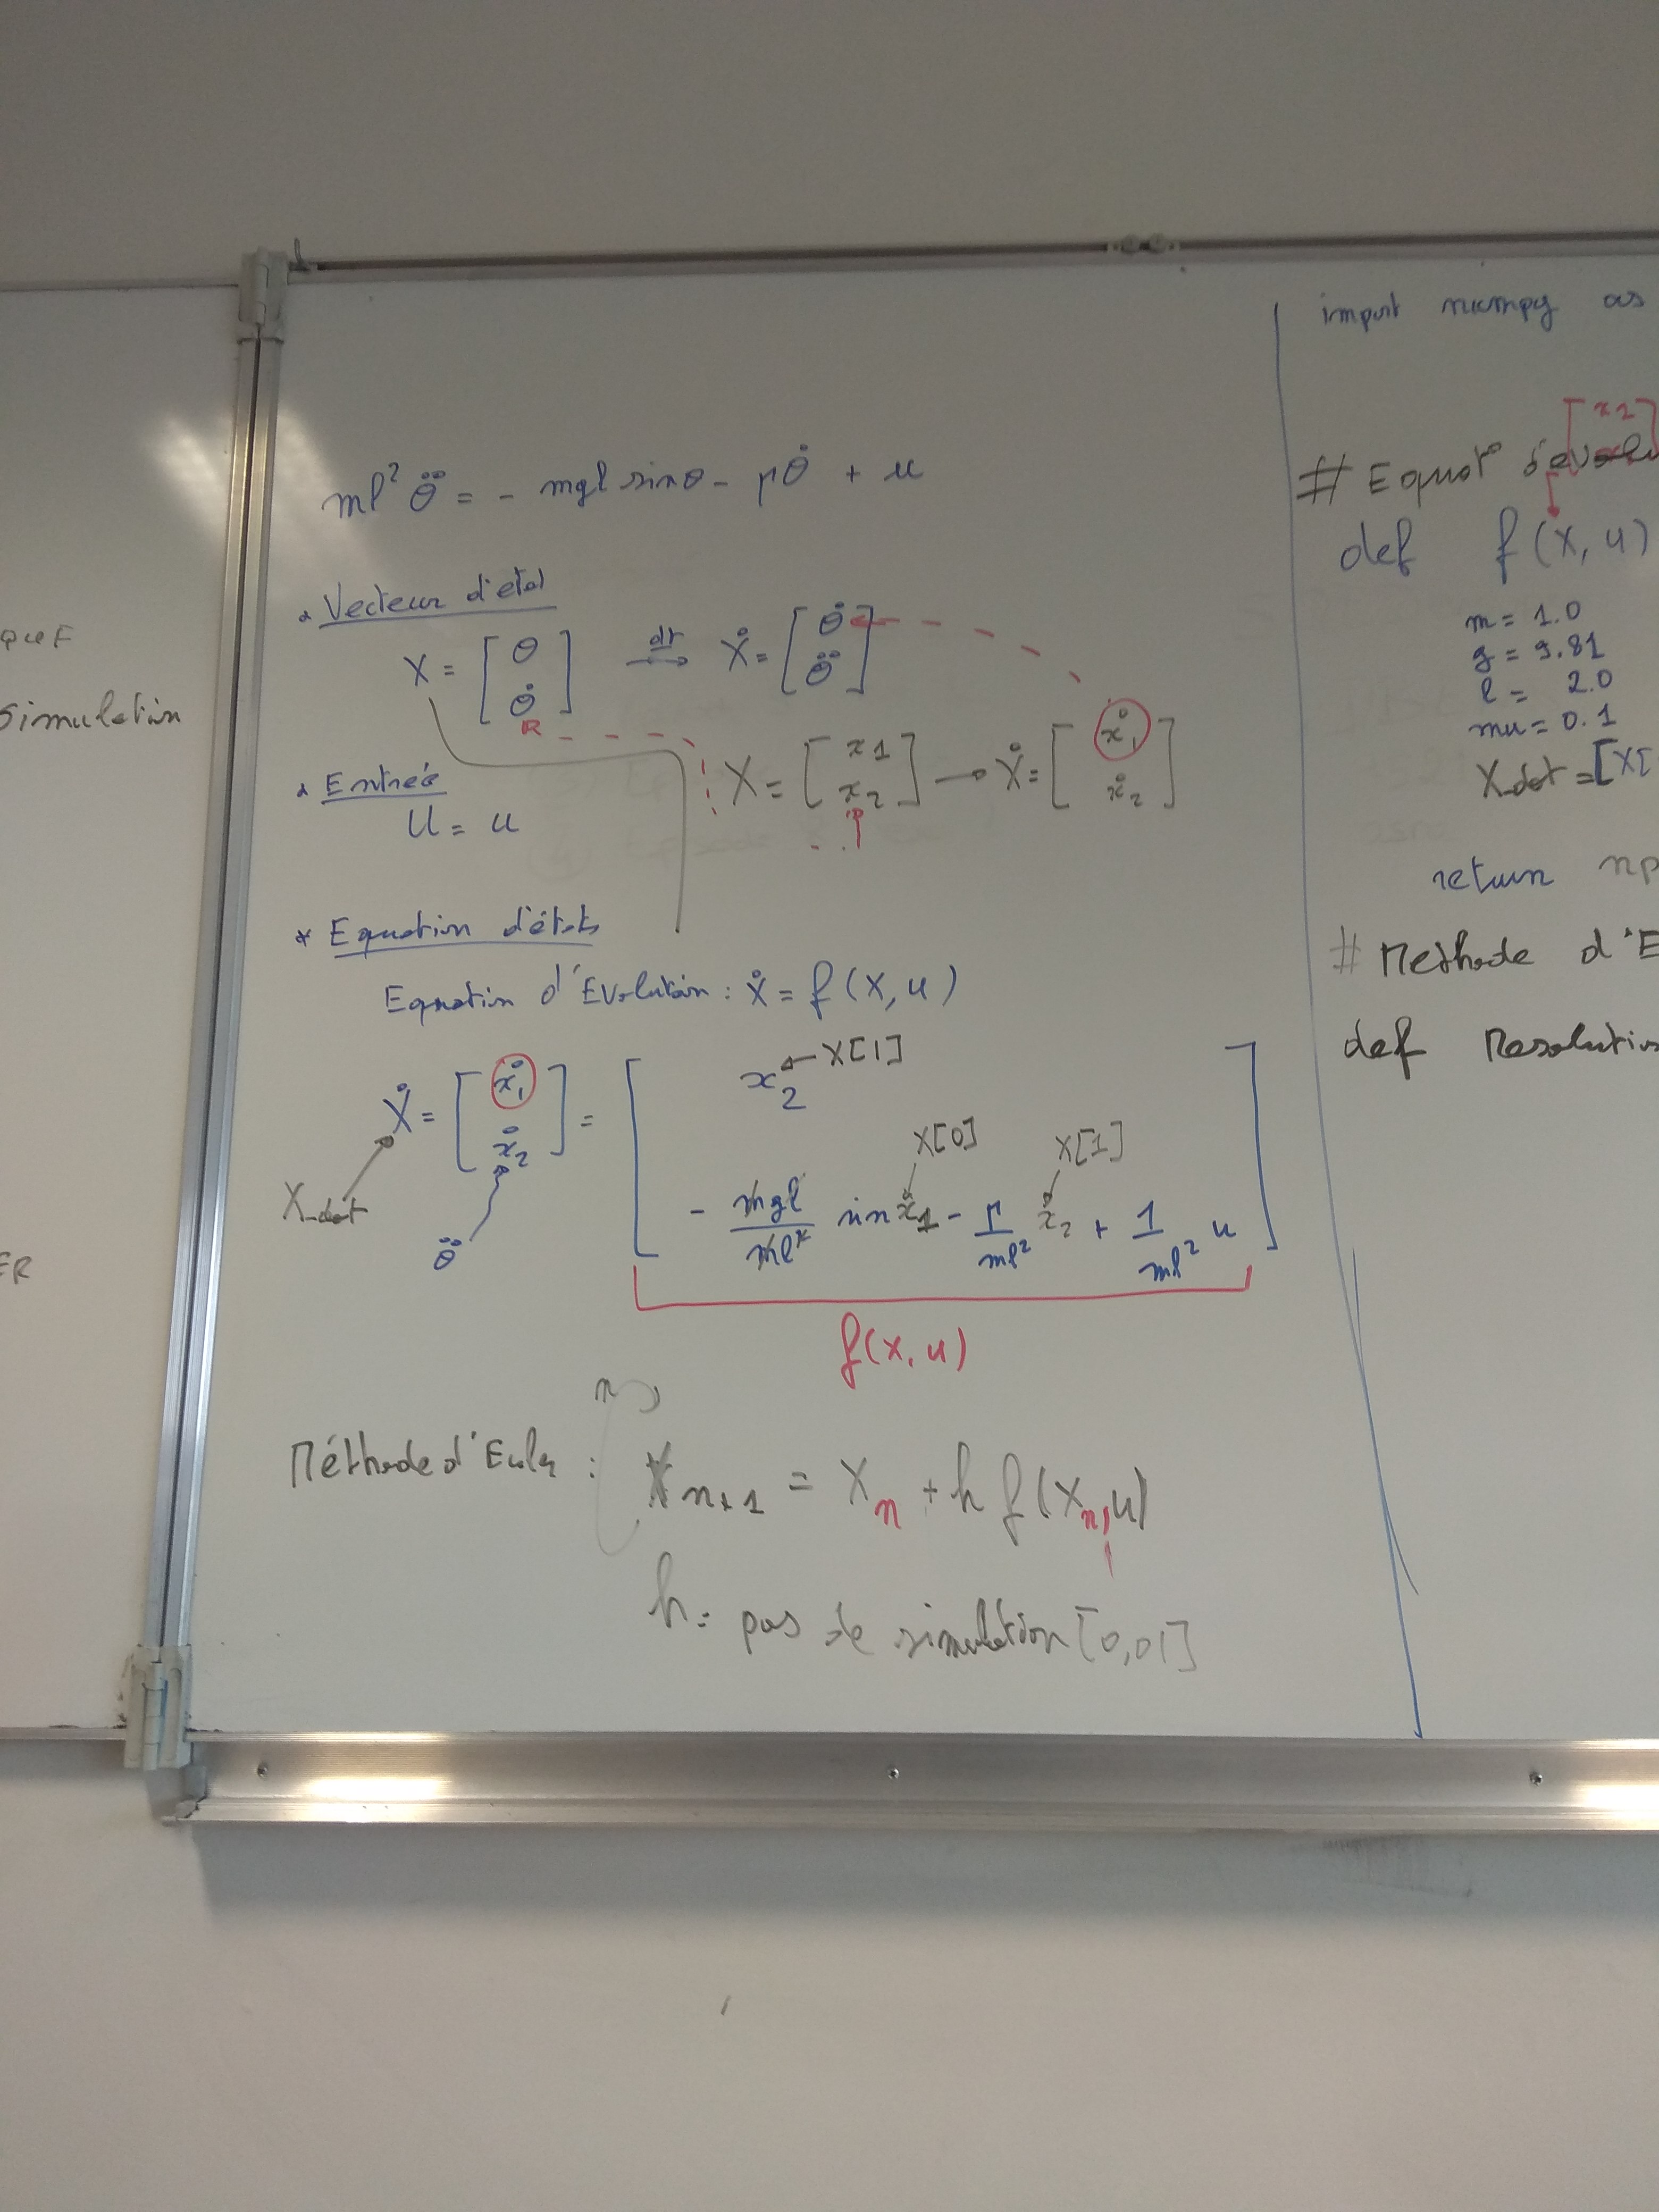 simulation
ml² θ̈ = - mgl sinθ - μθ̇ + u
* Vecteur d'état
X = [θ θ̇] dt → Ẋ = [θ̇ θ̈]
X = [x1 x2] → Ẋ = [ẋ1 ẋ2]
* Entrée
U = u
* Equation d'états
Equation d'Evolution : Ẋ = f(X, u)
x2 ← X[1]
Ẋ = [ẋ1 ẋ2] = [x2 - mgl/ml² sin x1 - μ/ml² x2 + 1/ml² u]
X[0] X[1]
X_dot
θ̈
f(x, u)
n
Méthode d'Euler : Xn+1 = Xn + h f(Xn, u)
h = pas de simulation [0,01]
import numpy as
[x1
# Equat° d'évolu
def f(X, u)
m = 1.0
g = 9.81
l = 2.0
mu = 0.1
X_dot = [X[
return np
# Methode d'E
def Resolution